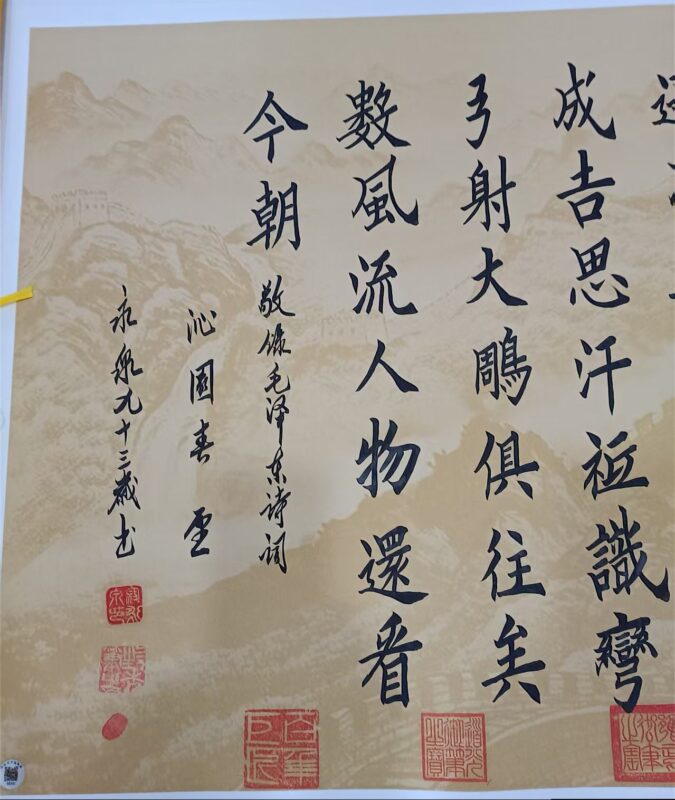 成吉思汗祗識彎
弓射大鵰俱往矣
數風流人物還看
今朝
敬錄毛泽东诗词
沁園春雪
永泉九十三歲书